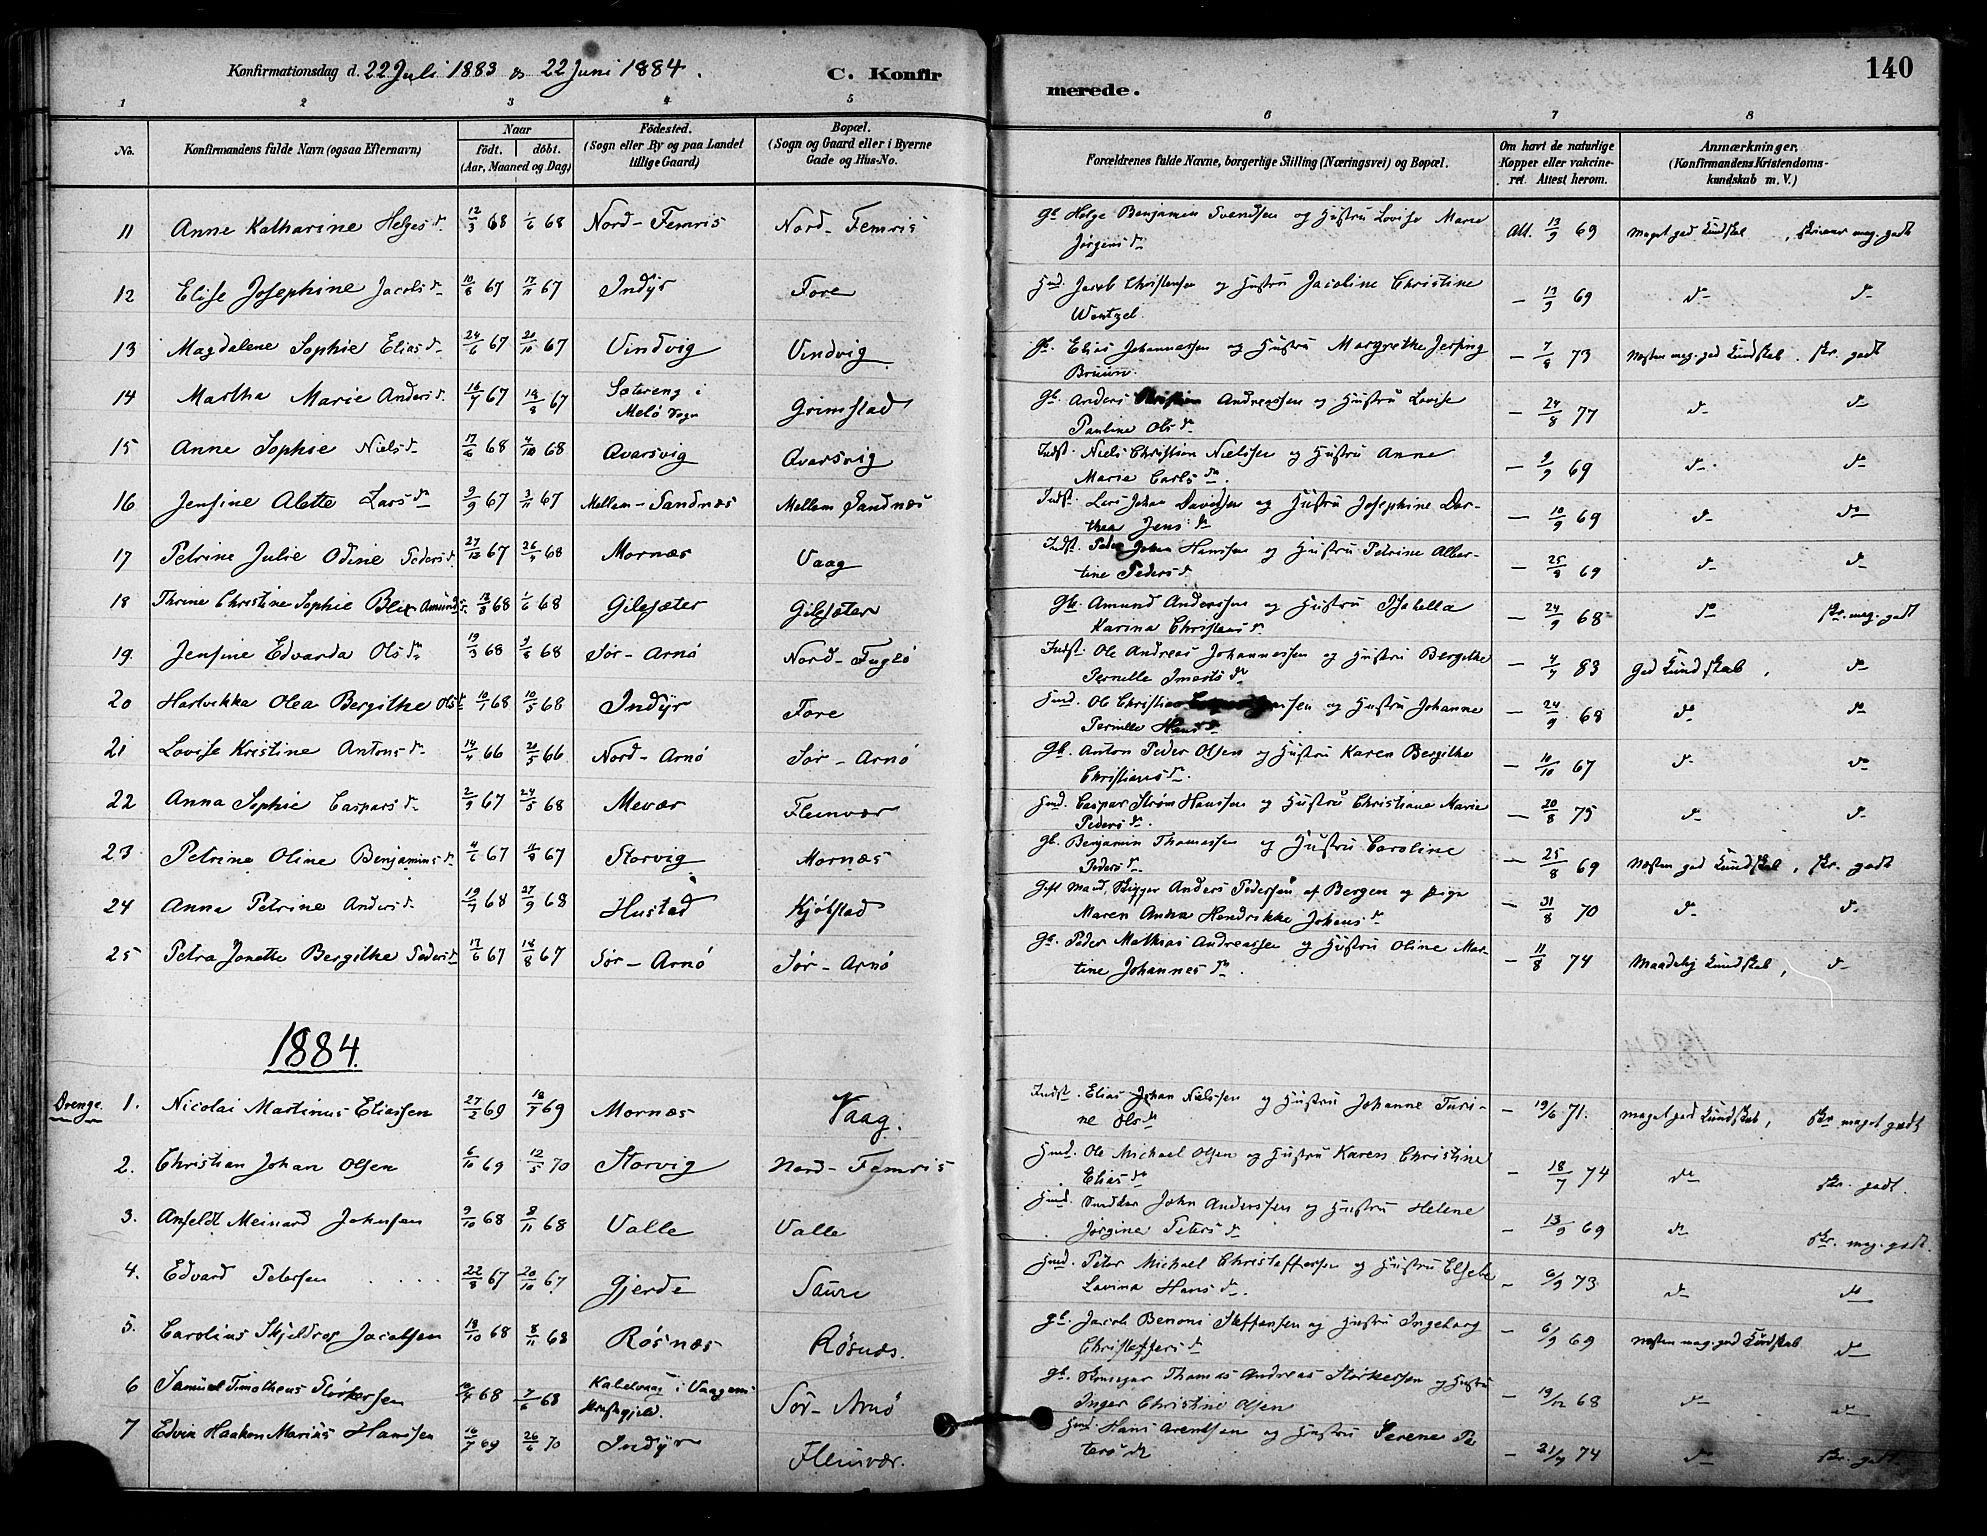 Konfirmationsdag d. 22 Juli 1883 og 22 Juni 1884.
C. Konfirmerede.
140
1 2 3 4 5 6 7 8
No.
Konfirmandens fulde Navn (ogsaa Efternavn)
Naar
födt. döbt.
(Aar, Maaned og Dag)
Födested.
(Sogn eller By og paa Landet
tillige Gaard)
Bopæl.
(Sogn og Gaard eller i Byerne
Gade og Hus-No.
Forældrenes fulde Navne, borgerlige Stilling (Næringsvei) og Bopæl.
Om havt de naturlige
Kopper eller vakcine-
ret. Attest herom.
Anmærkninger,
(Konfirmandens Kristendoms-
kundskab m. V.)
11 Anne Katharine Helgesdn 12/3 68 1/6 68 Nord-Femris Nord-Femris Gb. Helge Benjamin Svendsen og Hustru Lovise Marie
Jörgensdn Att. 13/9 69 Meget god Kundskab, skriver meg. godt
12 Elise Josephine Jacobsdn 10/8 67 17/11 67 Indyr Fore Hmd. Jacob Christensen og Hustru Jacoline Christine
Wentzel. — 13/9 69 do do
13 Magdalene Sophie Eliasdn 24/6 67 20/10 67 Vindvig Vindvig Gb. Elias Johannessen og Hustru Margrethe Jesping
Bruun. — 7/8 73 Næsten meg. god Kundskab. skr. godt
14 Martha Marie Andersdn 16/7 67 18/8 67 Sætereng i
Melö Sogn Grimstad Gb. Anders Andreassen og Hustru Lovise
Pauline Olsdn — 24/8 77 do do
15 Anne Sophie Nielsdn 17/6 68 4/10 68 Qvarsvig Qvarsvig Indst. Niels Christian Nielssen og Hustru Anne
Marie Carlsdn. — 9/9 69 do do
16 Jensine Alette Larsdn 9/9 67 3/11 67 Mellem-Sandnæs Mellem Sandnæs Indst. Lars Johan Davidsen og Hustru Josephine Dor-
thea Jensdn — 10/9 69 do do
17 Petrine Julie Odine Pedersdn 27/12 67 26/4 68 Mornæs Vaag Indst. Peder Johan Hanssen og Hustru Petrine Alber-
tine Pedersdn — 25/8 69 do do
18 Thrine Christine Sophie Blix Amundsdn 13/3 68 1/6 68 Gilesæter Gilesæter Gb. Amund Anderssen og Hustru Isabella
Karina Christensdn — 24/9 68 do skr. meg. godt
19. Jensine Edvarda Olsdn 19/3 68 2/8 68 Sör-Arnö Nord-Fuglö Indst. Ole Andreas Johannessen og Hustru Bergithe
Pernille Imertsdn — 4/7 83 God Kundskab, do
20 Hartvikka Olea Bergithe Olsdn 10/1 68 10/5 68 Indyr Fore Hmd. Ole Christian og Hustru Johanne
Pernille Hansdn — 24/9 68 do do
21 Lovise Kristine Antonsdn 14/4 66 20/5 66 Nord-Arnö Sör-Arnö Gb. Anton Peder Olsen og Hustru Karen Bergithe
Christiansdn. — 10/10 67 do do
22 Anna Sophie Caspersdn 2/9 67 24/5 68 Mevær Fleinvær Hmd. Caspar Ström Hanssen og Hustru Christiane Marie
Pedersdn. — 20/8 75 do do
23 Petrine Oline Benjaminsdn 4/6 67 11/8 67 Storvig Mornæs Gb. Benjamin Thomassen og Hustru Caroline
Pedersdn — 25/8 69 Næsten god Kundskab, skr. godt
24 Anna Petrine Andersdn 19/7 68 27/9 68 Hustad Kjöbstad Gift Mand, Skipper Anders Pedersen af Bergen og Pige
Maren Anna Hendrikke Johansdn — 31/8 70 do do
25 Petra Jonette Bergithe Pedersdn 17/6 67 18/8 67 Sör-Arnö Sör-Arnö Gb. Peder Mathias Andreassen og Hustru Oline Mar-
tine Johannesdn. — 11/8 74 Maadelig Kundskab, do
1884.
Drenge. 1. Nicolai Martinus Eliassen 27/2 69 18/7 69 Mornæs Vaag. Indst. Elias Johan Nielssen og Hustru Johanne Turi-
ne Olsdn — 19/6 71. meget god Kundskab, skr meget godt
2. Christian Johan Olsen 6/10 69 12/5 70 Storvig Nord-Femris Hmd. Ole Michael Olsen og Hustru Karen Christine
Eliasdn — 18/7 74 do skr. godt.
3. Anfeldt Meinard Johnsen 9/10 68 8/11 68 Valle Valle Hmd. Snedker John Anderssen og Hustru Helene
Jörgine Petersdn — 13/9 69 do skr. meg. godt.
4. Edvard Petersen 22/8 67 20/10 67 Gjerde Saure Hmd. Peter Michael Christoffersen og Hustru Elsebe
Lavina Hansdn. — 6/9 73 do do
5. Carolius Skjeldrog Jacobsen 18/10 68 8/11 68 Rösnæs Rösnæs. Gb. Jacob Benoni Steffensen og Hustru Ingeborg
Christoffersdn — 6/9 69 Næsten meg. god Kundskab do
6 Samuel Timotheus Störkersen 10/4 68 7/6 68 Kabelvaag i Vaagens
Præstegjeld. Sör-Arnö Gb. Thomas Andreas Störkersen og Hustru
Inger Christine Olsen — 19/12 68 do do
7 Edvin Haakon Marius Hanssen 16/7 69 26/6 70 Indyr Fleinvær. Hmd. Hans Arentsen og Hustru Serene Pe-
tersdn — 21/9 74 do skr. godt.